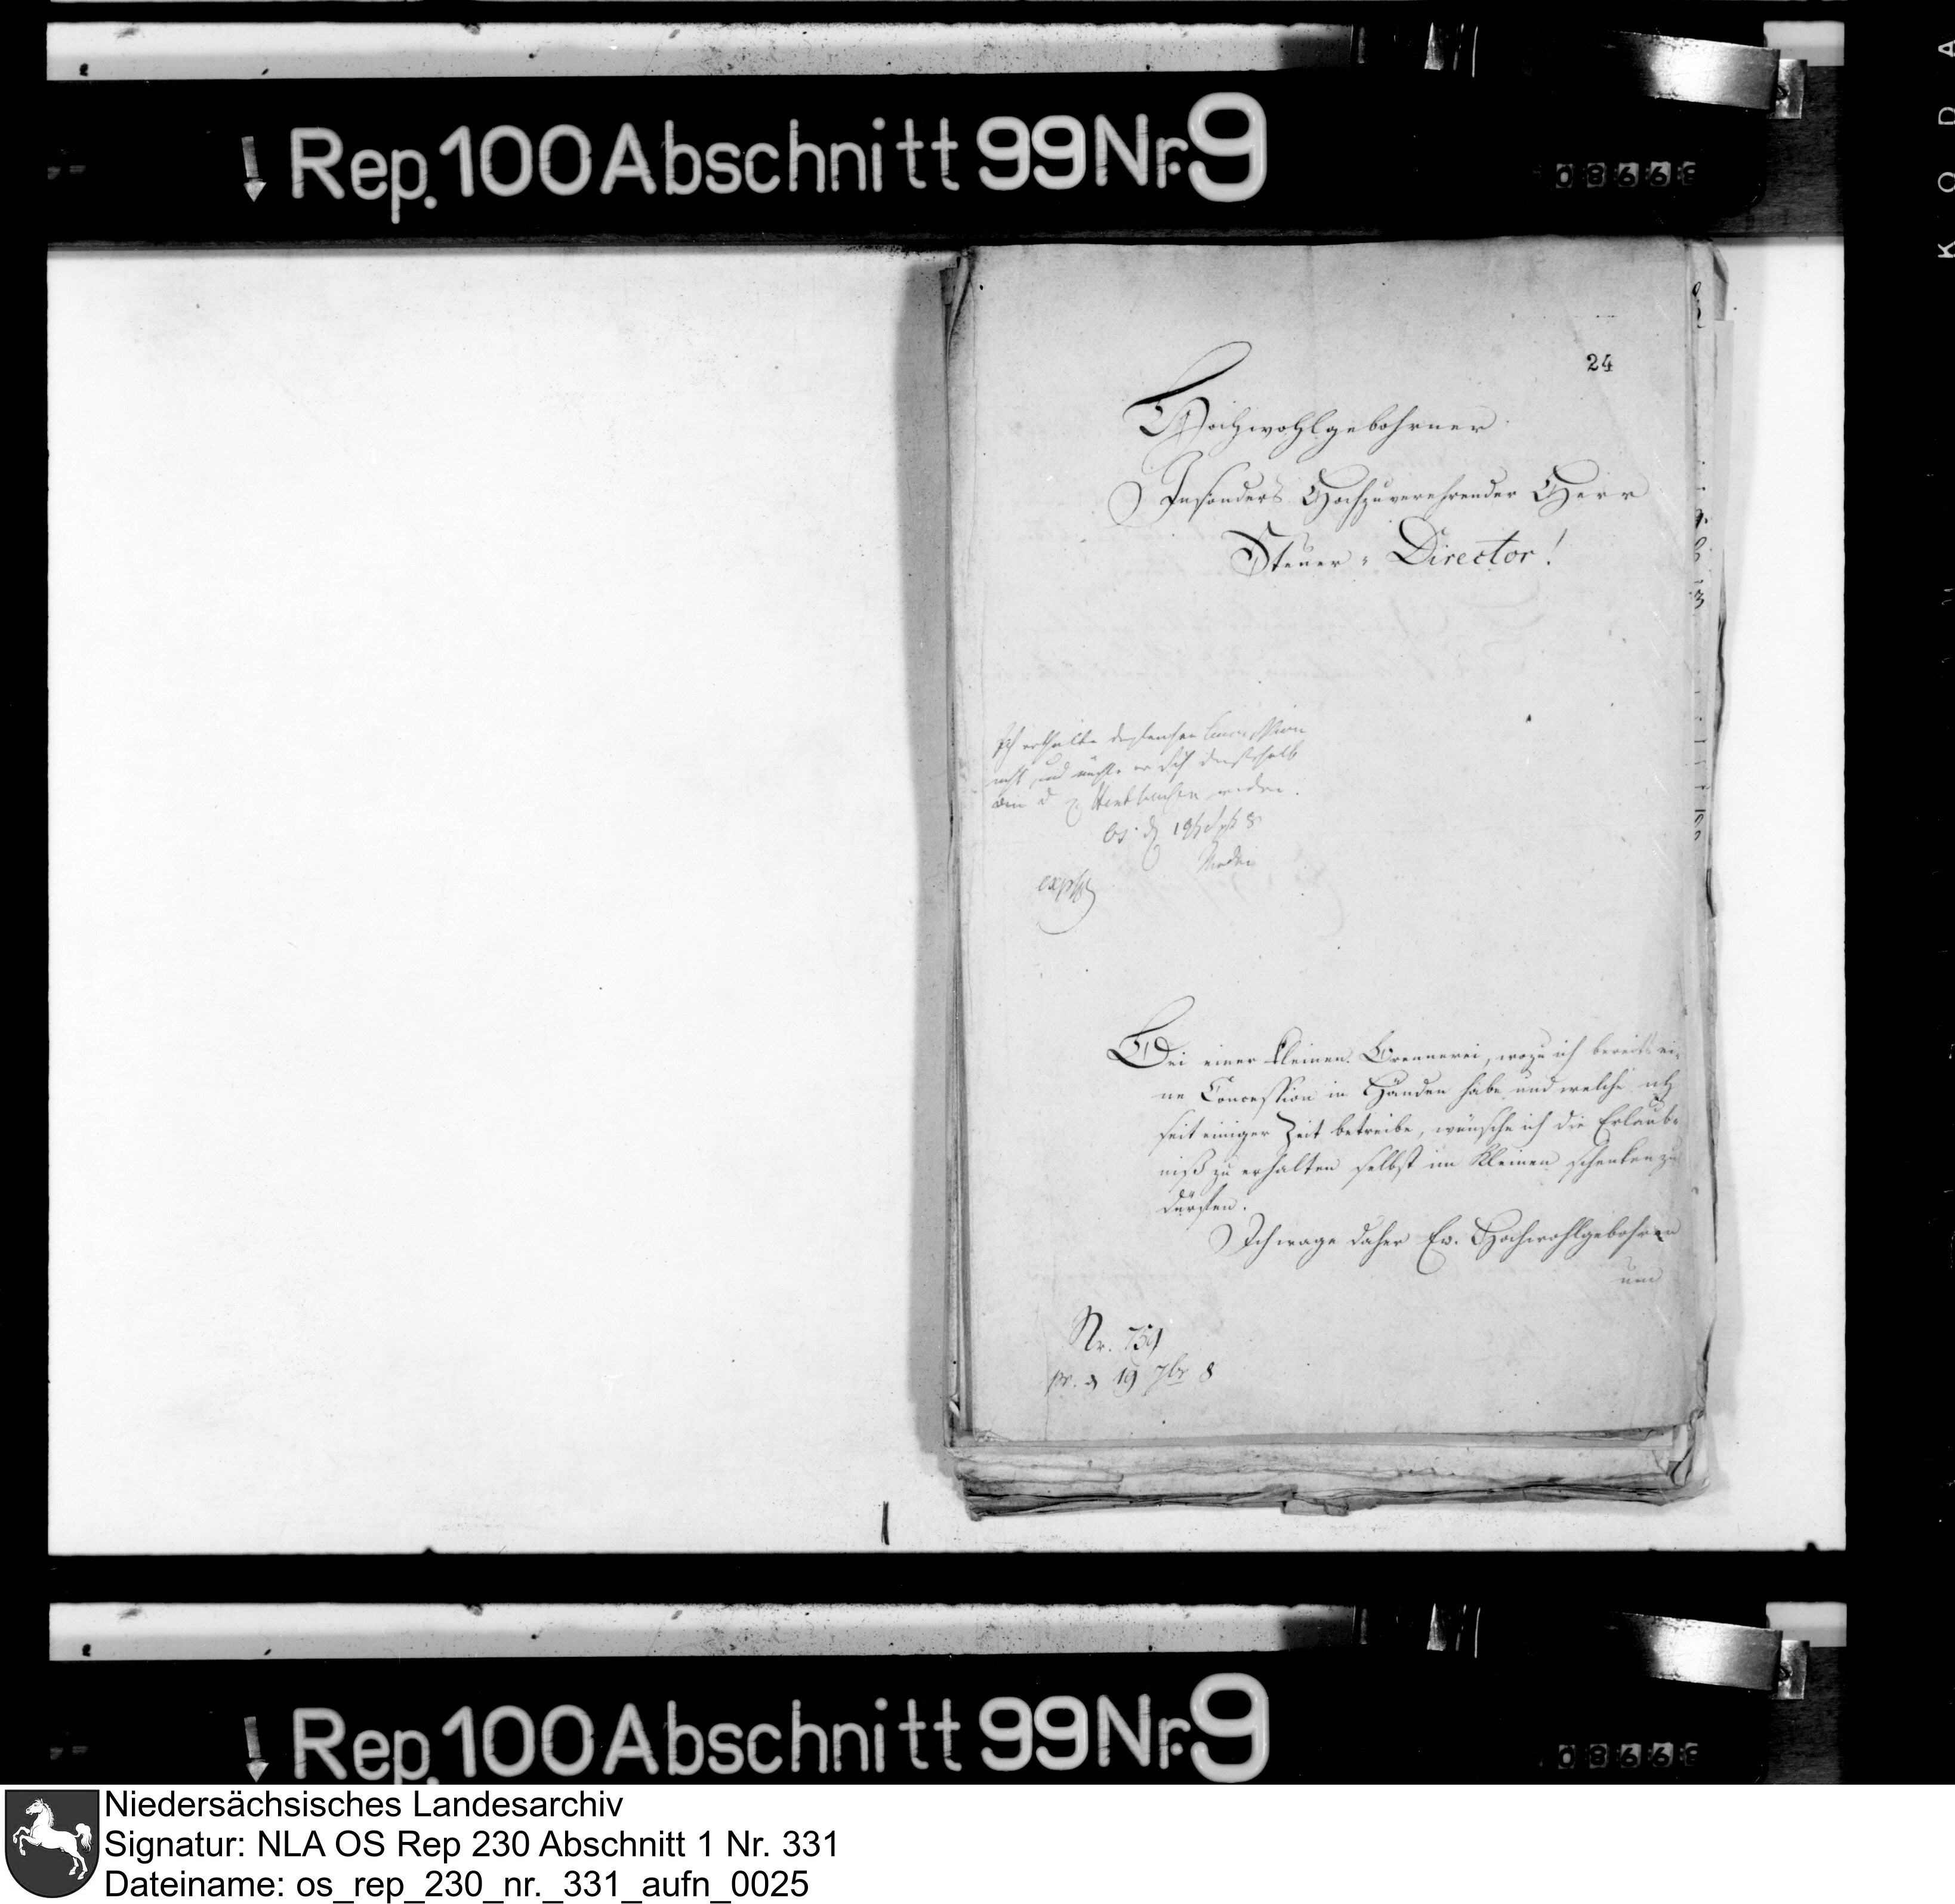 Rep. 100 Abschnitt 99 Nr. 9
0866
KODA
24
Hochwohlgebohrner
Insonders Hochzuverehrender Herr
Steuer-Director!
Concession
nicht und
Bei einer kleinen Brennerei, wozu ich bereits ei-
ne Concession in Händen habe und welche ich
seit einiger Zeit betreibe, wünsche ich die Erlaub-
niß zu erhalten selbst im Kleinen schenken zu
dürfen.
Ich wage daher Ew. Hochwohlgebohren
um
Nr. 759
pr. d 19 7br 8
Rep. 100 Abschnitt 99 Nr. 9
0866
Niedersächsisches Landesarchiv
Signatur: NLA OS Rep 230 Abschnitt 1 Nr. 331
Dateiname: os_rep_230_nr._331_aufn_0025